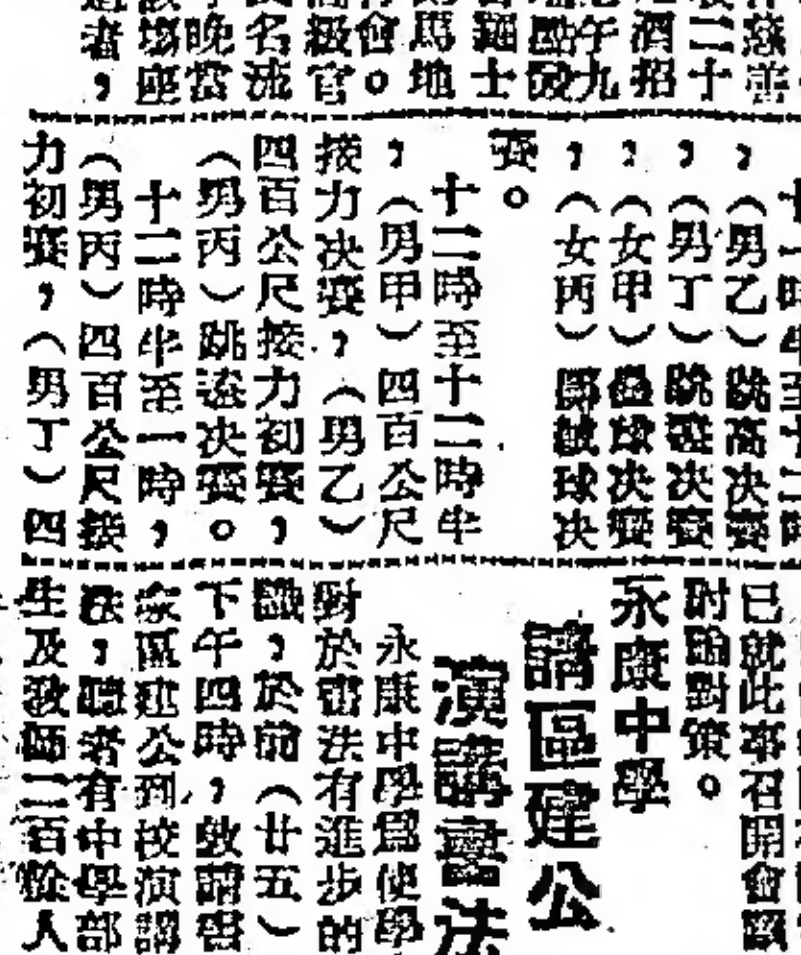 慈善
二十
酒招
午九
士
馬地
會。
級官
名流
晚當
座
者，
十一時半至十二時
，（男乙）跳高決賽
，（男丁）跳遠決賽
，（女甲）壘球決賽
，（女丙）擲壘球決
賽。
十二時至十二時半
，（男甲）四百公尺
接力決賽，（男乙）
四百公尺接力初賽，
（男丙）跳遠決賽。
十二時半至一時，
（男丙）四百公尺接
力初賽，（男丁）四
已就此事召開會議
討論對策。
永康中學
請區建公
演講書法
永康中學爲使學
對於書法有進步的
識，於前（廿五）
下午四時，敦請書
家區建公到校演講
法，聽者有中學部
生及教師二百餘人